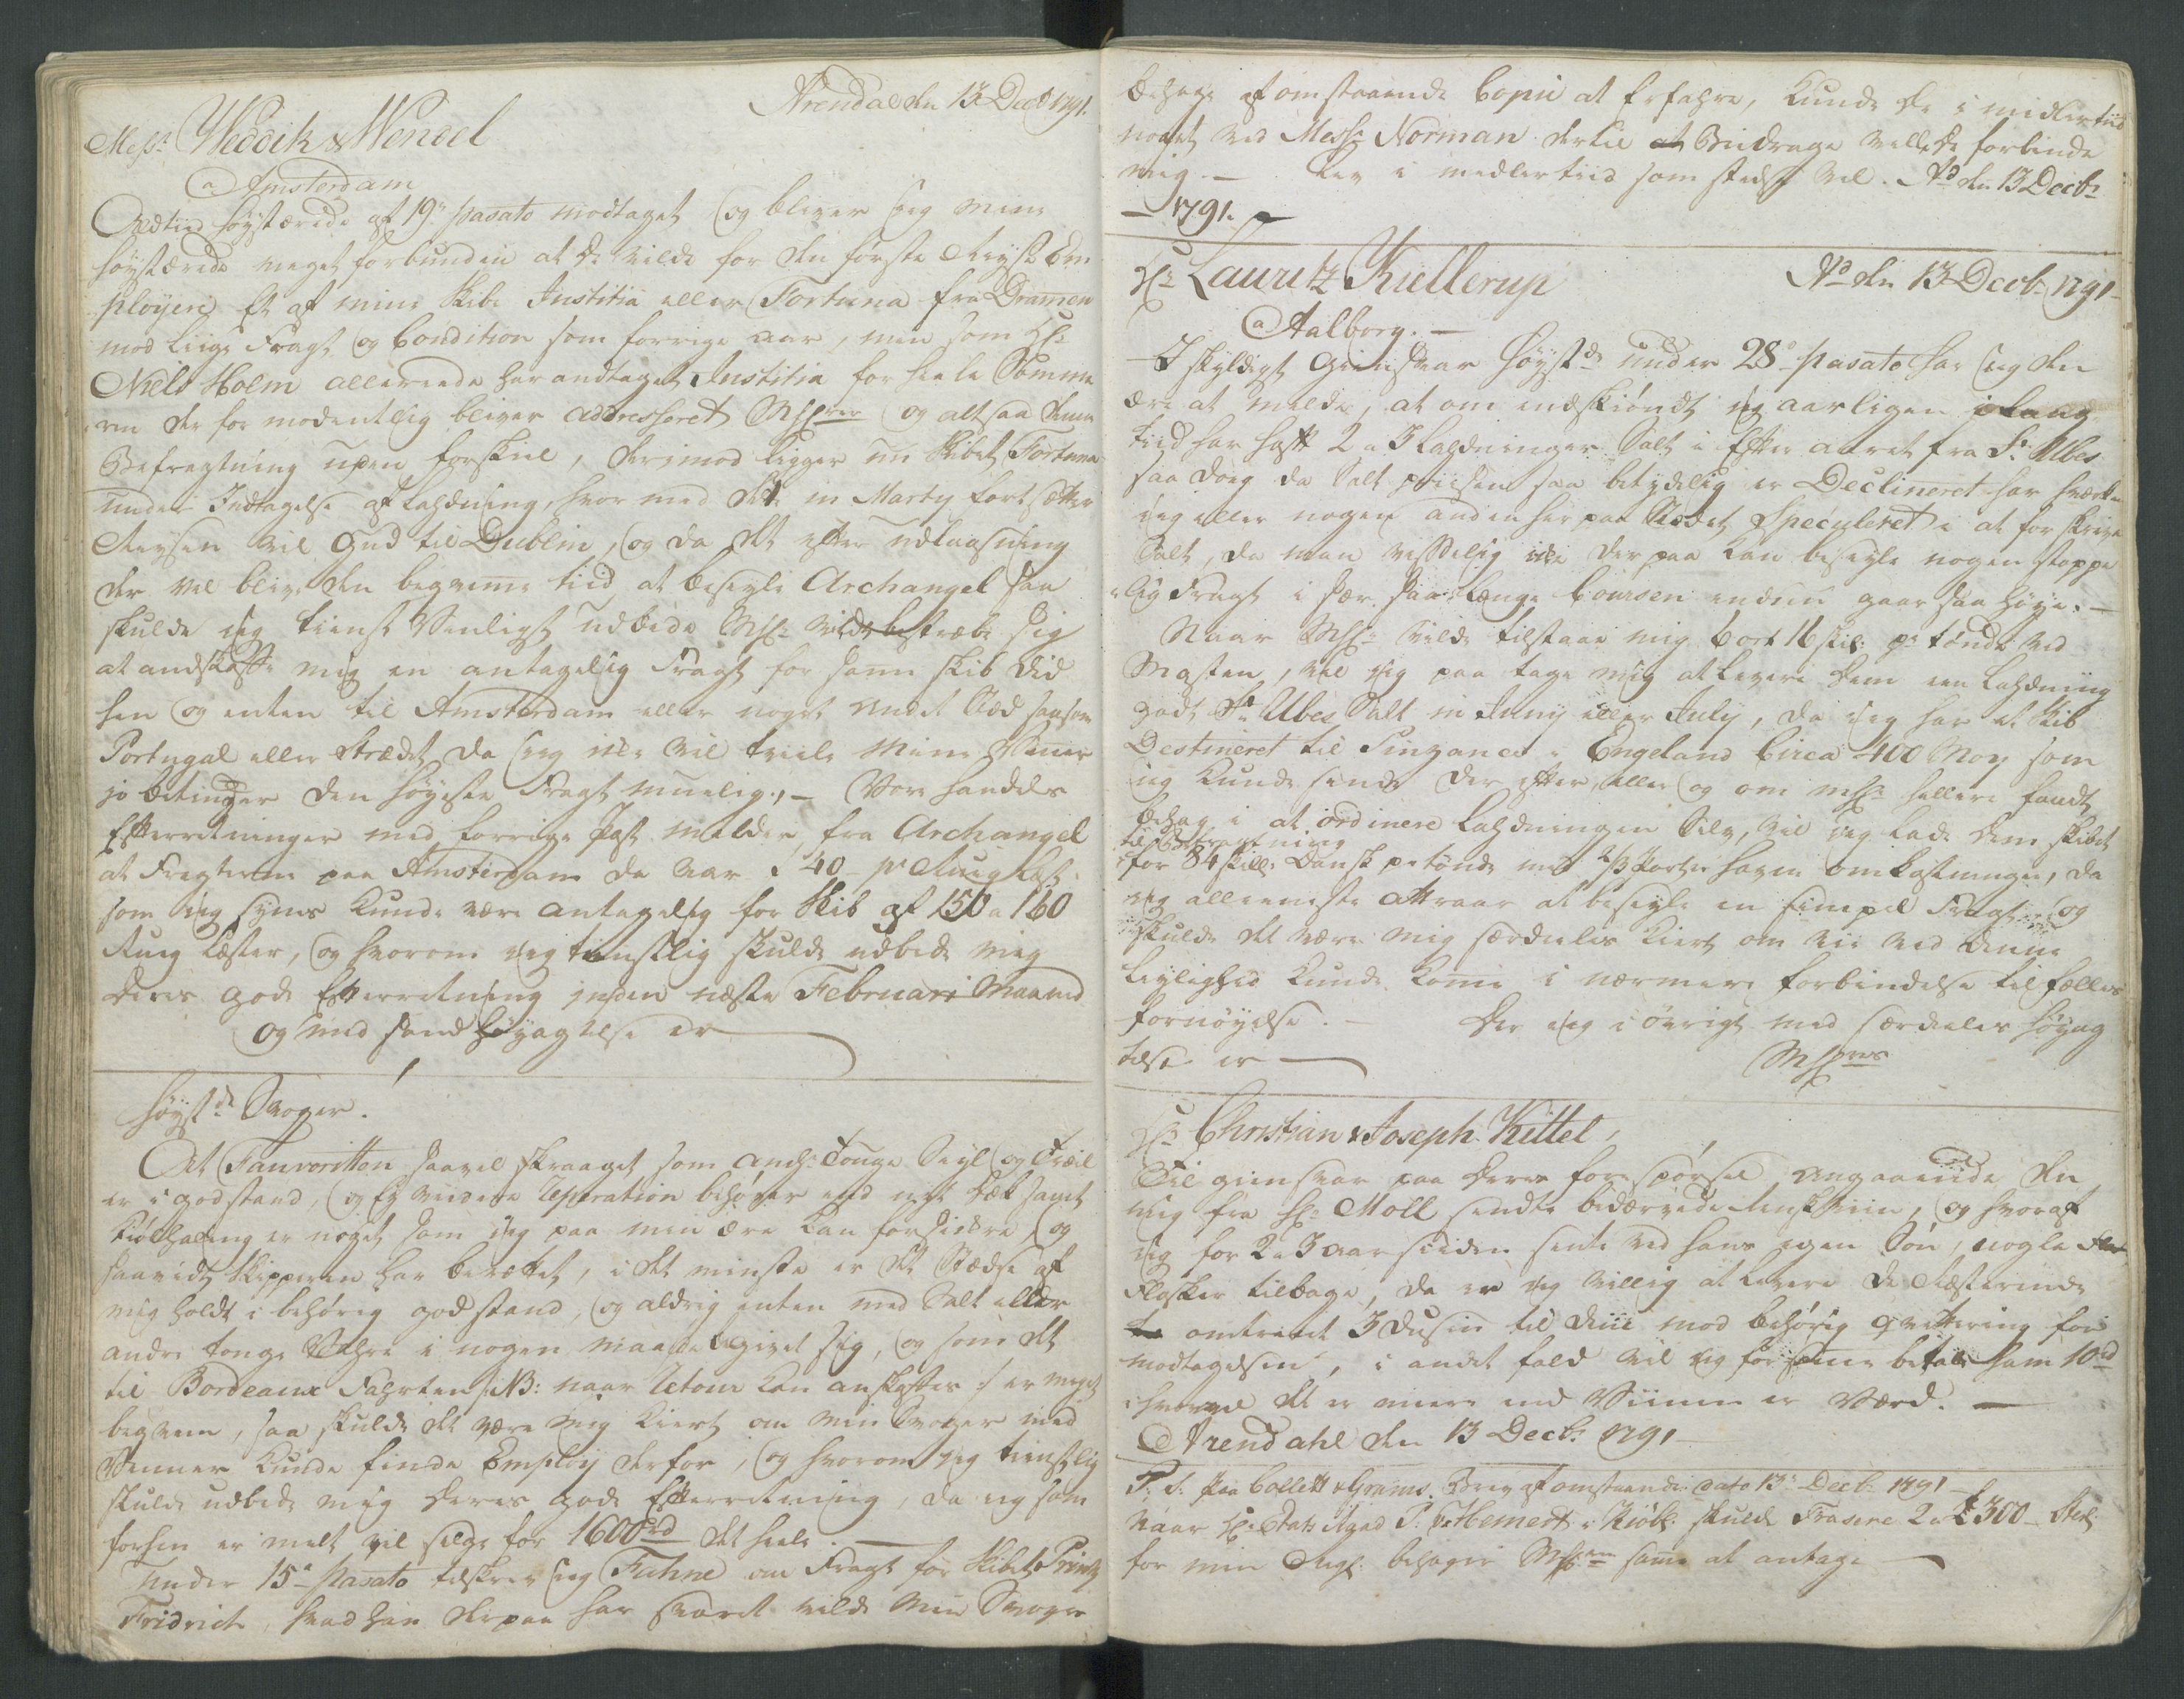 Arendal den 13 Decb 1791.
Messr Weddik & Wendel
a Amsterdam
Altiid høystærede af 19de pasato modtaget og bliver jeg mine
høystærede meget forbunden at de vilde for den første Reyse Em
ployere et af mine Skibe Justitia eller Fortuna fra Dramen
mod liige Fragt og Condition som forrige aar, men som Hr
Niels Holm allereede har andtaget Justitia for heele Somme
ren der for modentlig bliver addresseret MHrrer og altsaa denne
Befragtning uden forskiel, derimod ligger nu Skibet Fortuna
under Indtagelse af Lahdning, hvor med det in Marty fortsætter
Reysen vil Gud til Dublin, og da det efter udlaasning
der vel bliver den beqveme tiid at beseyle Archangel saa
skulde jeg tienst Venligst udbede MHr vilde bestræbe sig
at andskaffe mig en antagelig Fragt for samme skib did
hen og enten til Amsterdam eller noget andet Stæd saasom
Portugal eller Strædet da jeg ikke vil tvile Mine Venner
jo betinger den høyeste Fragt muelig, - Vore handels
Efterretninger med forrige Post melder fra Archangel
at Fragterne paa Amsterdam da var f 40 pr Ruug Læst
som jeg synes kunde være antagelig for Skib af 150 a 160
Ruug Læster, og hvorom jeg tienstlig skulde udbede mig
deres gode Efterretning inden næste Februari Maaned
og med sand høyagtelse er
høystde Svoger!
At Favoritten saavel skraaget, som Anch: Touge Seyl og Træil
er i god stand, og Ej videre Reperation behøver end nyt dæk samt
kiølhaling er noget som jeg paa min ære kan forsickre, og
saavidt Skipperen har berættet, i det minste er det Stædse af
mig holdt i behørig god stand, og aldrig enten med Salt eller
andre tonge Vahre i nogen maade begivet sig, og som det
til Bordeaux Fahrten /: NB: naar Retour kan anskaffes :/ er meget
beqvem, saa skulde det være mig kiert om min Svoger med
Venner kunde finde Employ derfor, og hvorom jeg tienstlig
skulde udbede mig deres gode Efterretning, da jeg som
forhen er melt vil selge for 1600rd det heele. -
Under 15de pasato tilskrev jeg Fuhne om Fragt for Skibet Printz
Fridrich, hvad han derpaa har svaret vilde Min Svoger
behage af omstaaende Copie at Erfahre, kunde De i midlertiid
noget ved Messr Norman dertil at Bidrage vilde De forbinde
mig. - Lev i medlertiid som stedse Vel. Ad den 13 Decbr
- 1791. -
Hr Lauritz Kiellerup Ad den 13 Decbr 1791 -
a Aalborg. -
I skyldigst Giensvar Høystde under 28de pasato har jeg den
ære at melde, at om endskiøndt jeg aarligen i lang
tiid har haft 2 a 3 Lahdninger Salt i Efter aaret fra St Ubes
saa dog da Salt priisen saa betydelig er Declineret har hverken
jeg eller nogen anden her paa Stædet Speculeret i at forskrive
Salt, da man visselig ikke der paa kan beseyle nogen skappe
lig Fragt i sær saa længe Coursen endnu gaar saa høye. -
Naar MHr vilde tilstaae mig 6 ort 16 skil: pr tønde ved
Masten, vil jeg paa tage mig at levere dem een Lahdning
godt St Ubes Salt in Juny eller July, da jeg har et Skib
Destineret til Pinzance i Engeland Circa 400 Moy som
jeg kunde sende der efter, eller og om MHr hellere fandt
behag i at ordinere Lahdningen Selv, vil jeg lade dem skibet
til Befragtning
for 84 skill: Dansk pr tønde med 2/3 Parter havne omkostninger, da
jeg alleeneste attraar at beseyle en simpel Fragt, og
skulde det være mig særdeeles kiert om vii ved denne
leylighed kunde komme i nærmere forbindelse til fælles
fornøyelse. - Der jeg i øvrigt med særdeeles høyag
telse er MHrres
Hr Christian & Joseph Kittel,
Til giensvar paa deres forespørsel angaaende den
mig fra Hr Moll sendte bedærvede Vin, og hvoraf
jeg for 2 a 3 aar siiden sente ved hans egen Søn, nogle
Flasker tilbage, da er jeg villig at levere de Resterende
omtrent 3 dusin til dem mod behørig qvittering for
modtagelsen, i andet fald vil jeg for samme betale ham 10rd
hvorvel det er meere end Viinen er Værd. -
Arendahl den 13 Decbr 1791 -
P. S. paa Collett & Grams. Brev af omstaaende dato 13de Decbr 1791 -
Naar Hr Etats Raad P. v Hemert i Kiøbh: skulde Trasere 2 a £ 300 - Sterl:
for min Regn: behager MHren samme at antage -